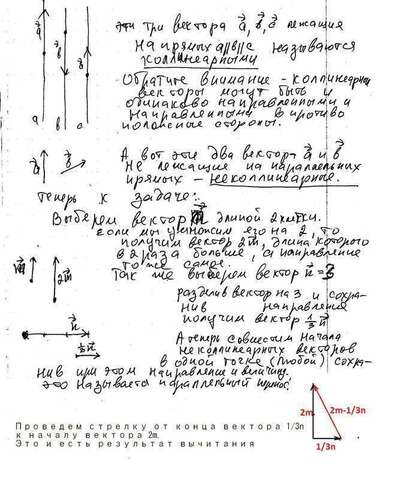 эти три вектора a⃗, b⃗, c⃗ лежащия
на прямых a||b||c называются
коллинеарными
Обратите внимание - коллинеарны
векторы могут быть и
одинаково направленными и
направленными в противо
положные стороны.
a b c
А вот эти два вектора a⃗ и b⃗
не лежащие на параллельных
прямых - неколлинеарные.
теперь к задаче:
Выберем вектор m⃗ длиной 2 клетки.
если мы умножим его на 2, то
получим вектор 2m⃗, длина которого
в 2 раза больше, а направление
то же самое.
m⃗ 2m⃗
Так же выберем вектор n⃗ = 3
разделив вектор на 3 и сохра-
нив направления
получим вектор 1/3 n⃗
n⃗
1/3 n⃗
А теперь совместим начала
неколлинеарных векторов
в одной точке (любой) сохра-
нив при этом направление и величину.
это называется параллельный перенос.
2m 2m-1/3n
1/3n
Проведем стрелку от конца вектора 1/3n
к началу вектора 2m.
Это и есть результат вычитания